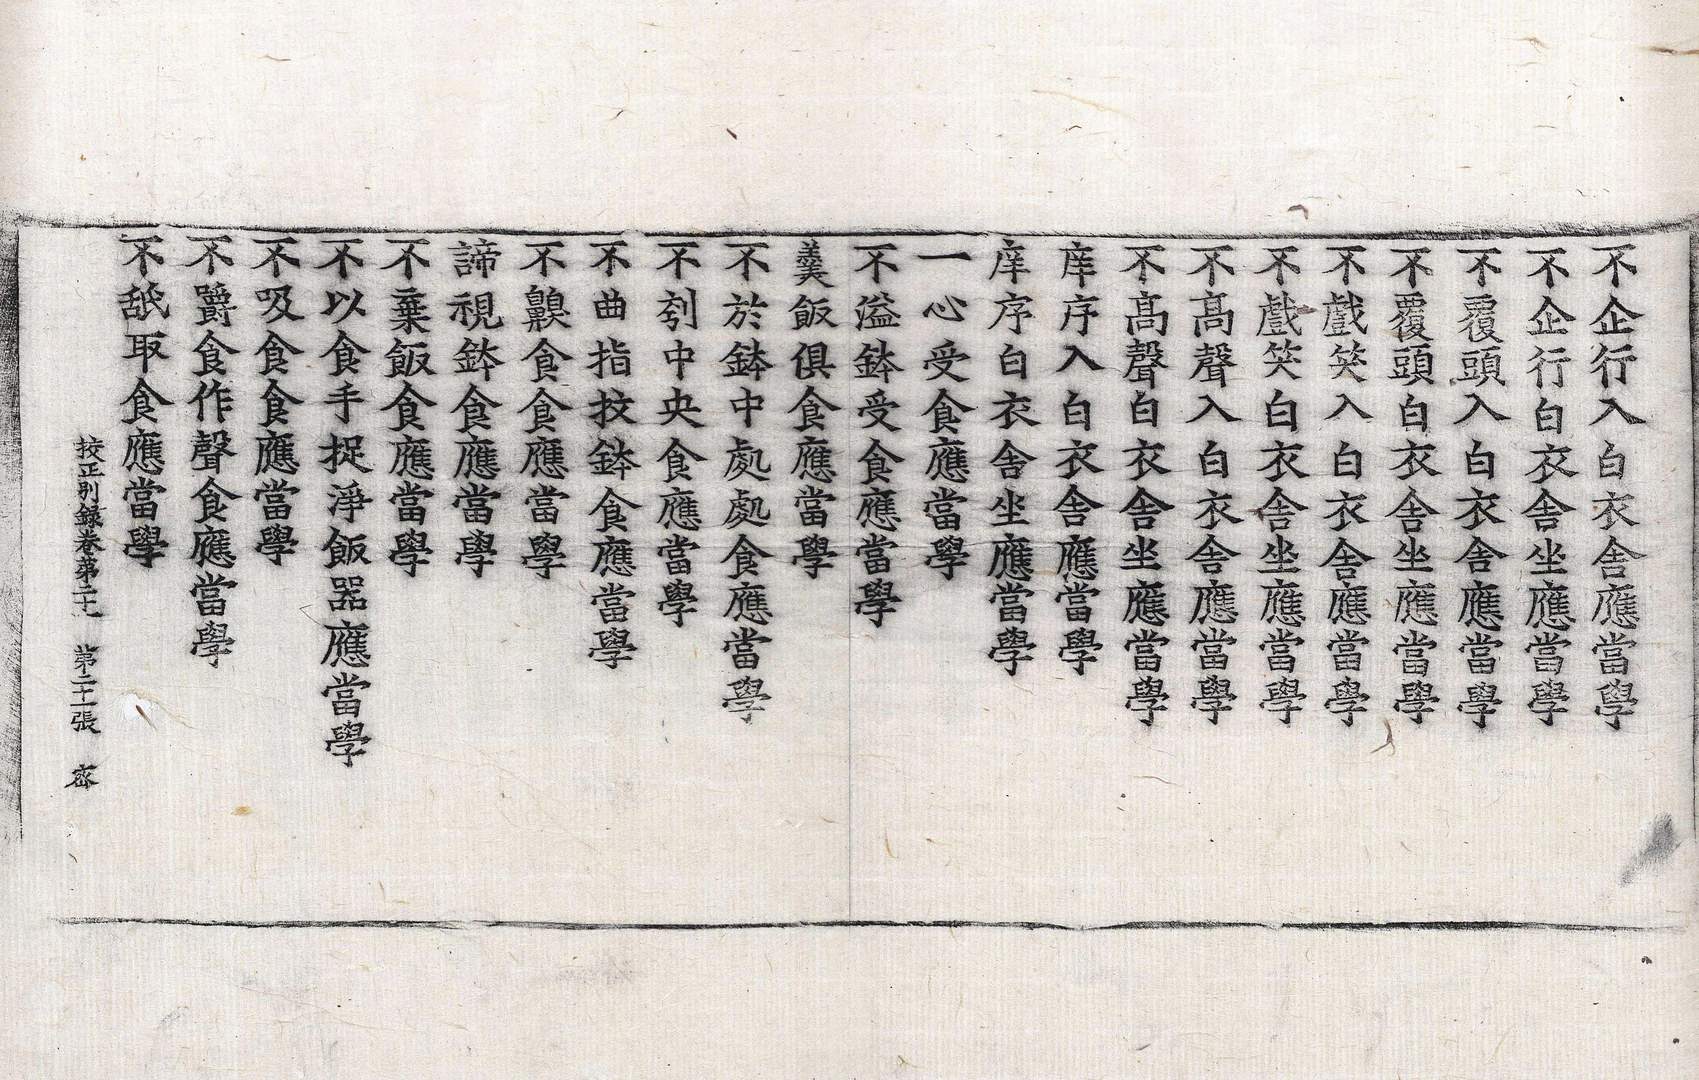 不企行入白衣舎應當學
不企行白衣舎坐應當學
不覆頭入白衣舎應當學
不覆頭白衣舎坐應當學
不戲笑入白衣舎應當學
不戲笑白衣舎坐應當學
不髙聲入白衣舎應當學
不髙聲白衣舎坐應當學
庠序入白衣舎應當學
庠序白衣舎坐應當學
一心受食應當學
不溢鉢受食應當學
羹飯俱食應當學
不於鉢中處處食應當學
不刳中央食應當學
不曲指抆鉢食應當學
不齅食食應當學
諦視鉢食應當學
不棄飯食應當學
不以食手捉淨飯器應當學
不吸食食應當學
不嚼食作聲食應當學
不舐取食應當學
挍正別録卷第二十九 第二十一張 密